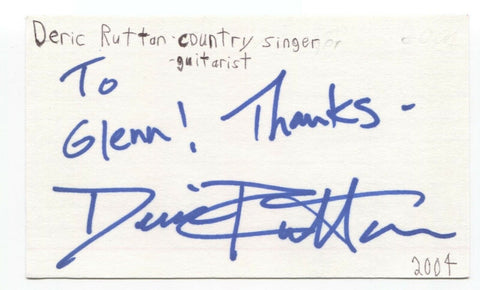 Deric Ruttan - country singer
- guitarist
To
Glenn! Thanks -
Deric Ruttan
2004